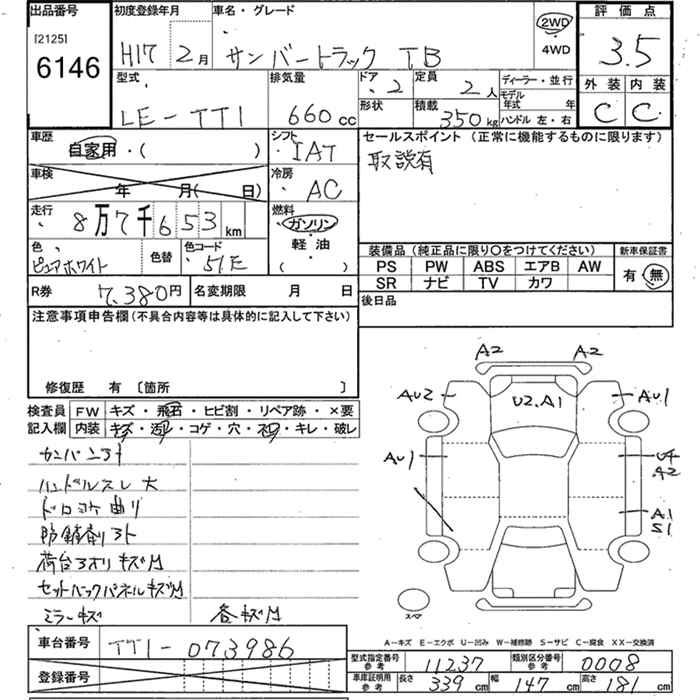 出品番号
[2125]
6146
初度登録年月
H17 2月
車名・グレード
サンバートラック TB
2WD
4WD
評価点
3.5
外装 内装
C C
型式
LE-TT1
排気量
660cc
ドア 2
定員 2人
形状
積載 350kg
ディーラー・並行
モデル年式 年
ハンドル 左・右
車歴
自家用・( )
シフト
IAT
セールスポイント(正常に機能するものに限ります)
取説有
車検
年 月( 日)
冷房
AC
走行
8万7千653km
燃料
ガソリン
・
軽油
( )
色
ピュアホワイト
色替
色コード
51E
装備品(純正品に限り○をつけてください)
PS PW ABS エアB AW
SR ナビ TV カワ
新車保証書
有 無
R券 7,380円
名変期限 月 日
後日品
注意事項申告欄(不具合内容等は具体的に記入して下さい)
修復歴 有 〔箇所 〕
検査員記入欄
FW キズ・飛石・ヒビ割・リペア跡・×要
内装 キズ・汚れ・コゲ・穴・スレ・キレ・破レ
ハンドルスレ大
ドロヨケ曲り
防錆剤ヌト
荷台アオリキズM
セットバックパネルキズM
ミラーキズ
各キズM
A2 A2
AU2 U2.A1 AU1
AU1 U4
A2
A1
S1
スペア
A-キズ E-エクボ U-凹み W-補修跡 S-サビ C-腐食 XX-交換済
車台番号
TT1-073986
登録番号
型式指定番号参考 11237
類別区分番号参考 0008
車庫証明用参考 長さ 339cm 幅 147cm 高さ 181cm